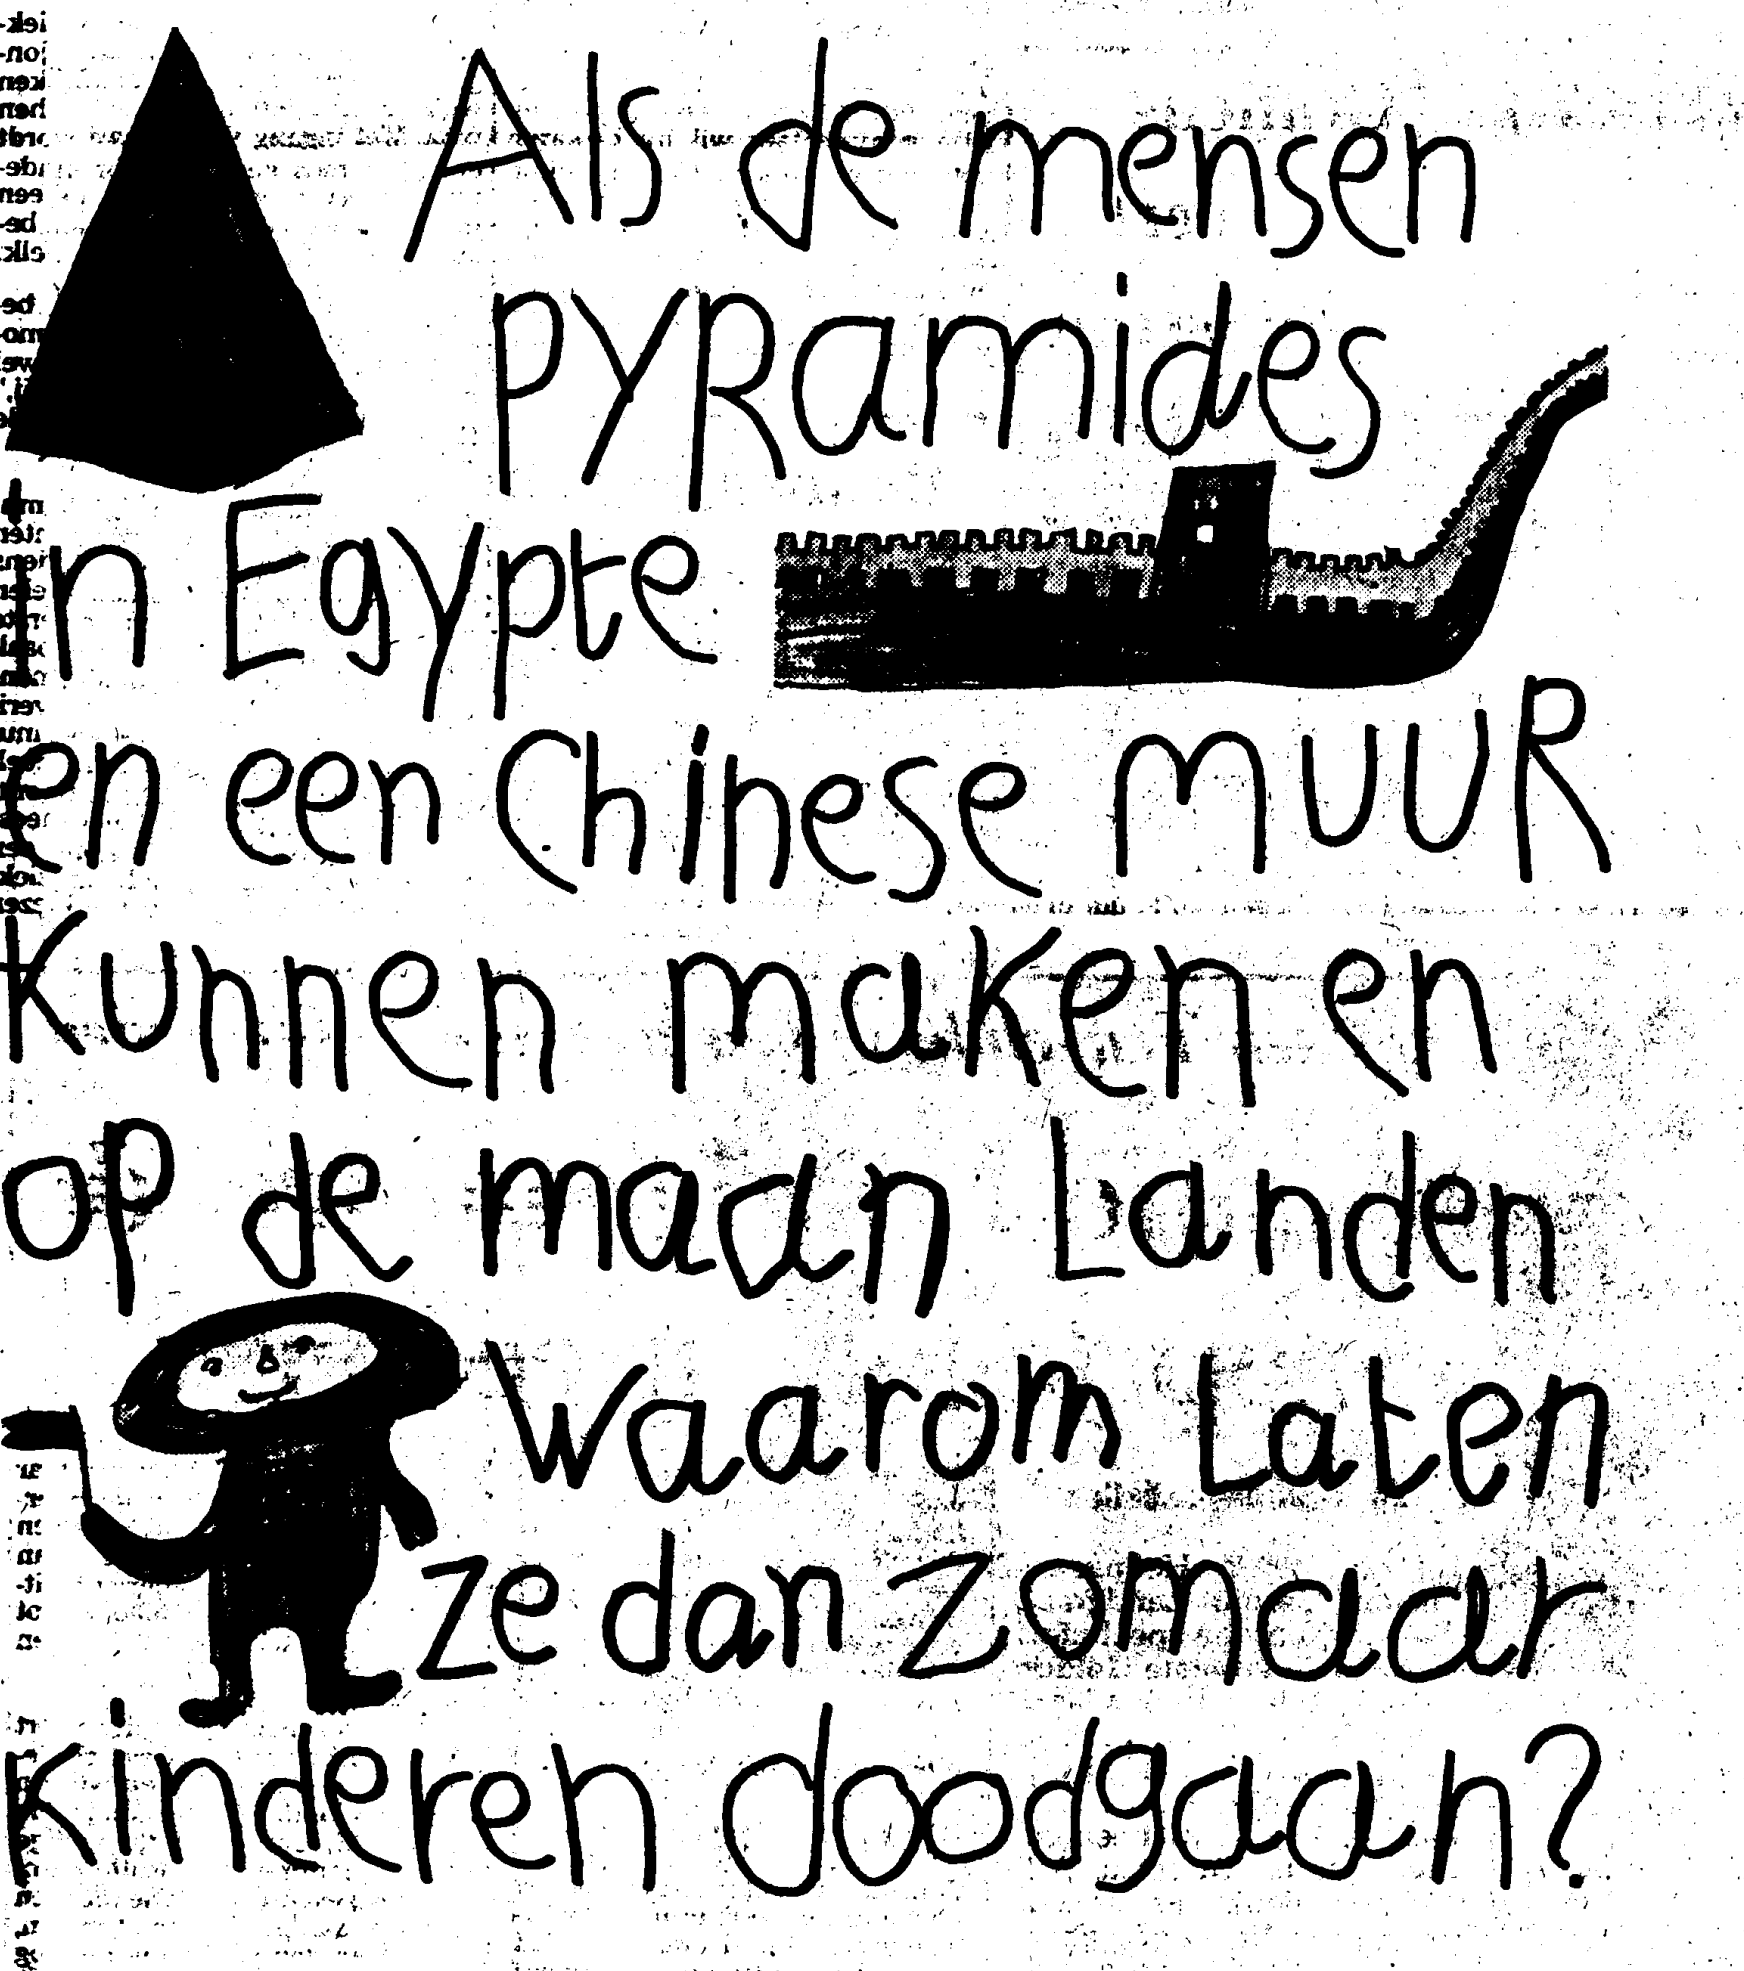 Als de mensen
pyRamides
in Egypte
en een Chinese muuR
Kunnen maken en
op de maan Landen
waarom Laten
ze dan zomaar
kinderen doodgaan?